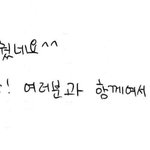 줬네요^^
! 여러분과 함께여서